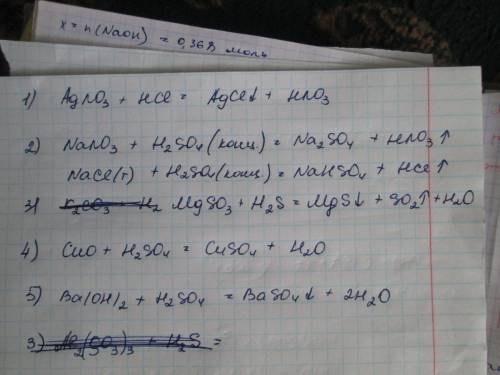 x = n(NaOH) = 0,368 моль
1) AgNO3 + HCl = AgCl↓ + HNO3
2) NaNO3 + H2SO4 (конц) = Na2SO4 + HNO3↑
NaCl(т) + H2SO4(конц) = NaHSO4 + HCl↑
3) K2CO3 + H2 MgSO3 + H2S = MgS↓ + SO2↑ + H2O
4) CuO + H2SO4 = CuSO4 + H2O
5) Ba(OH)2 + H2SO4 = BaSO4↓ + 2H2O
3) Al2(SO3)3 + H2S =